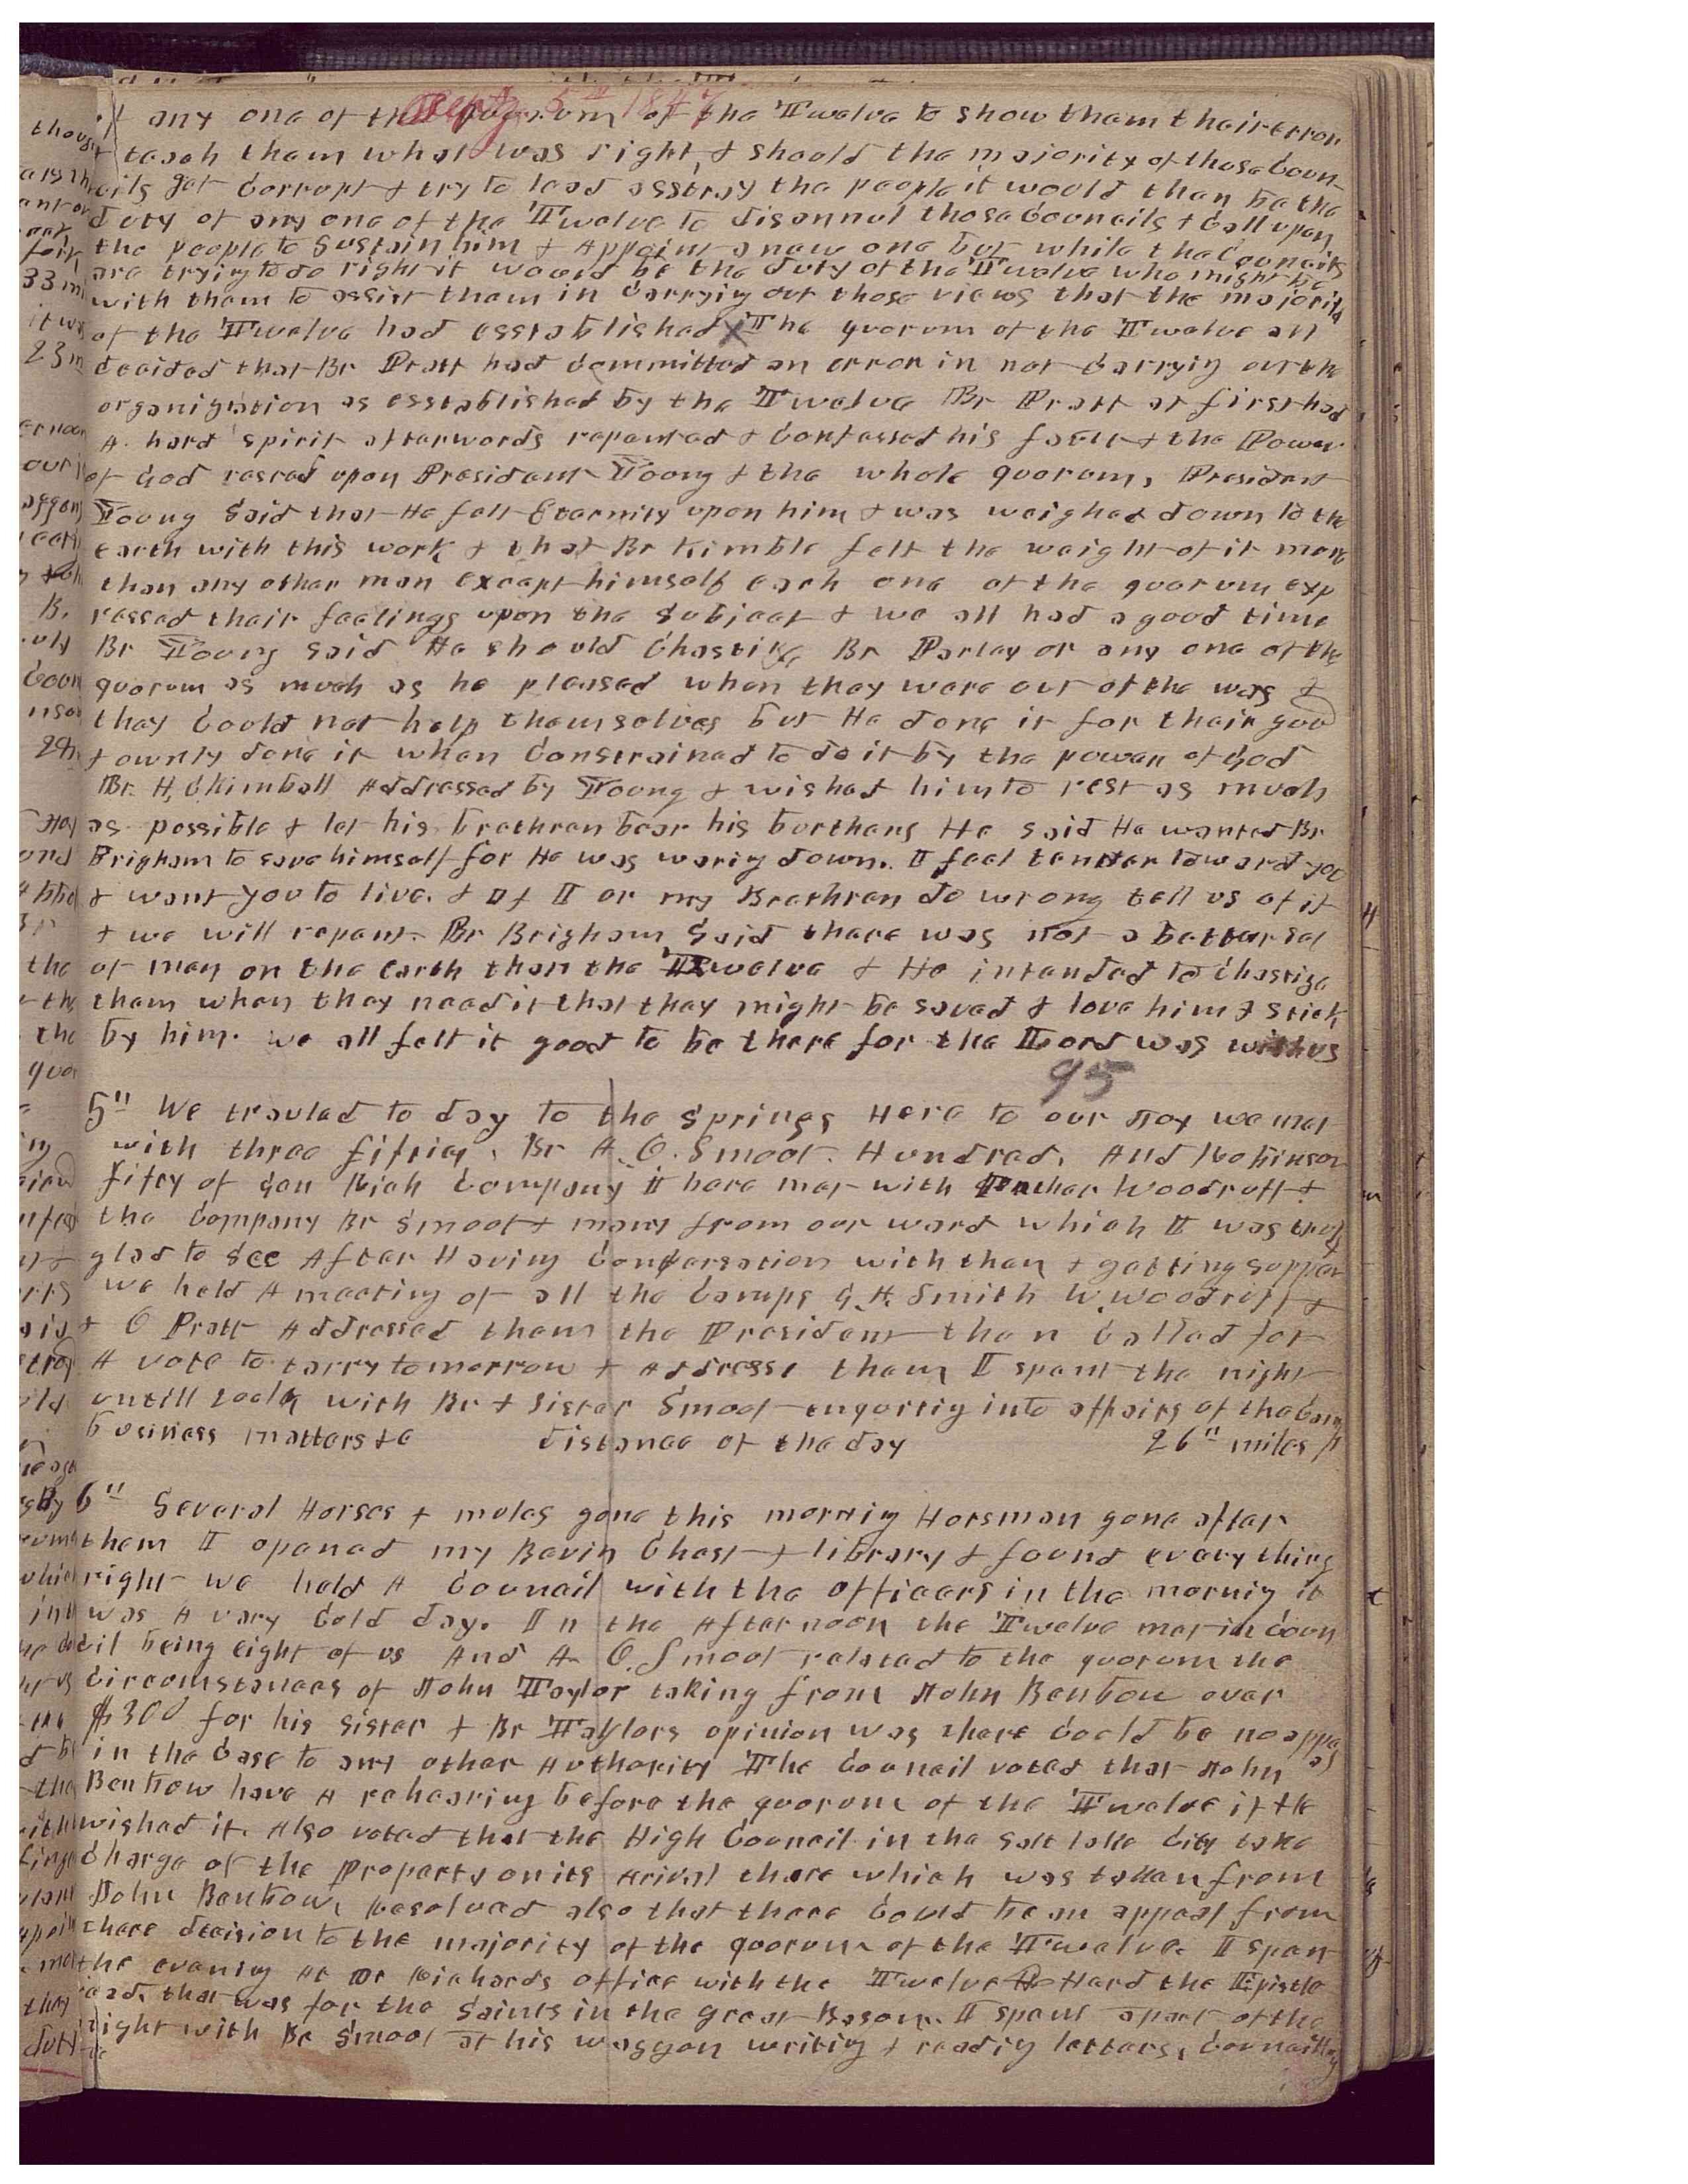 Septr 5th 1847
of any one of the quorum of the Twelve to show them their error
& teach them what was right, & should the majority of those Coun-
cils get Corrupt & try to lead asstray the people it would than be the
duty of any one of the Twelve to disannul those Councils & Call upon
the people to Sustain him & Appoint a new one but while the Councils
are trying to do right it would be the duty of the Twelve who might be
with them to assist them in Carrying out those views that the majority
of the Twelve had esstablished X The quorum of the Twelve all
decided that Br Pratt had Committed an error in not Carrying out the
organization as esstablished by the Twelve Br Pratt at first had
A hard spirit afterwords repented & Confessed his fault & the Power
of God rested upon President Young & the whole quorum, President
Young Said that He felt Eternity upon him & was weighed down to the
earth with this work & that Br Kimble felt the weight of it more
than any other man except himself each one of the quorum exp
ressed their feelings upon the Subject & we all had a good time
Br Young Said He should Chastize Br Parley or any one of the
quorum as much as he pleased when they were out of the way &
they Could not help themselves but He done it for their good
& ownly done it when Constrained to do it by the power of God
Br. H, C Kimball Addressed by Young & wished him to rest as much
as possible & let his brethren bear his burthens He said He wanted Br
Brigham to save himself for He was warig down. I feel tender toward you
& want you to live. & If I or my Brethren do wrong tell us of it
& we will repent. Br Brigham Said there was not a better set
of men on the Earth than the Twelve & He intended to Chastize
them when they need it that they might be saved & love him & stick
by him. we all felt it good to be there for the Lord was with us
95
5" We traveled to day to the Springs Here to our Joy we met
with three fifties, Br A. O. Smoot. Hundred, And Robinson
fifty of Gen Rich Company I here met with Father Woodruff &
the Company Br Smoot & many from our ward which I was truly
glad to See After Having Conversation with than & getting supper
we held A meeting of all the Camps G. A. Smith W. Woodruff &
& O Pratt Addressed them the President then Called for
A vote to tarry tomorrow & Addresse them I spent the night
untill with Br & Sister Smoot enquiriig into affairs of the Camp
business matters &c distance of the day 26" miles
6" Several Horses & mules gone this morning Horsman gone after
them I opened my Chest & library & found every thing
right we held A Council with the officers in the morniig it
was A very Cold day. In the After noon the Twelve met in Coun
cil being eight of us And A. O. Smoot related to the quorum the
Circumstances of John Taylor taking from John Benbow over
$300 for his Sister & Br Taylors opinion was there Could be no appeal
in the Case to any other Authority The Council voted that John
Benbow have A rehearing before the quorum of the Twelve if He
wished it. Also voted that the High Council in the Salt lake City take
Charge of the Property on its Arival there which was taken from
John Benbow, Resolved also that there Could be an appeal from
there decision to the majority of the quorum of the Twelve. I spent
the evening At Dr Richards office with the Twelve Hard the Epistle
read, that was for the Saints in the great Bason. I spent apart of the
night with Br Smoot at his waggon writiig & readiig letters, Councilling